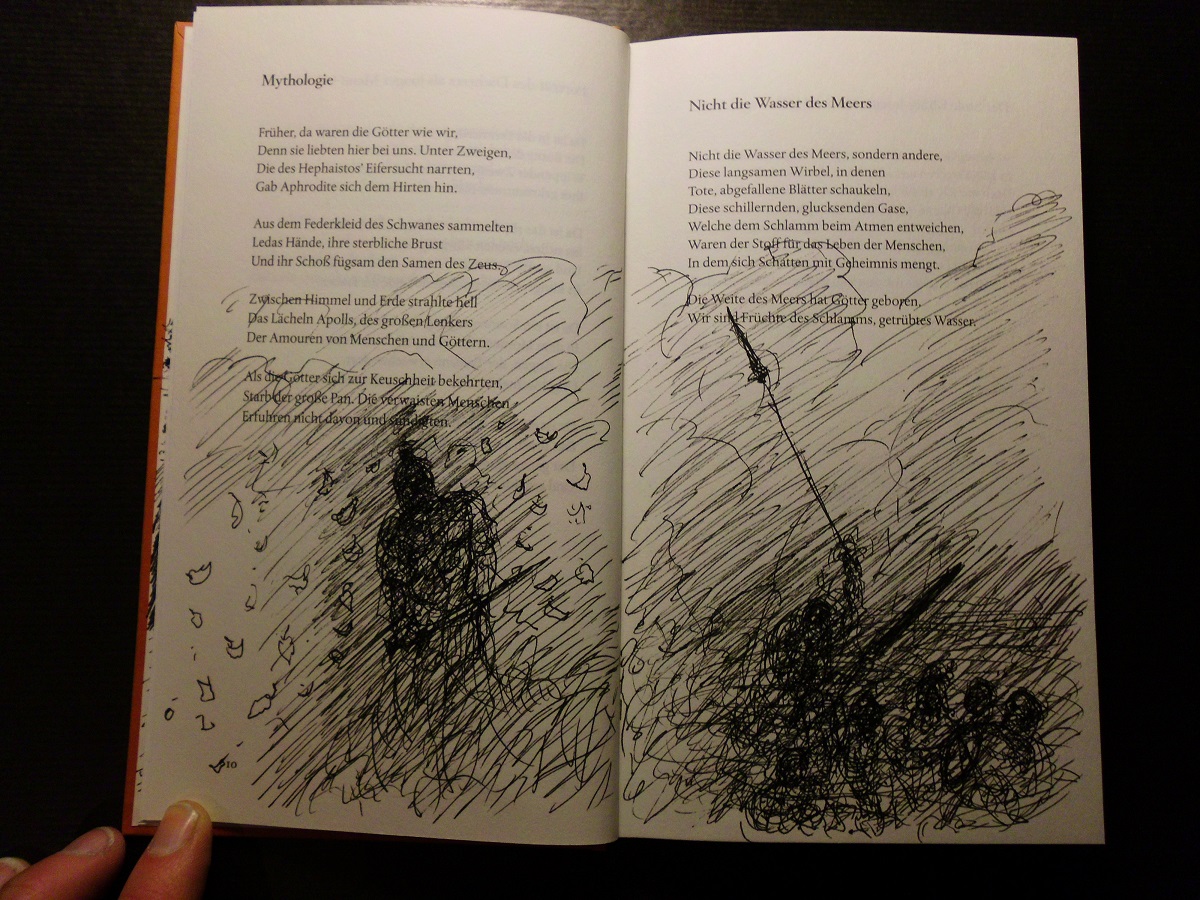 Mythologie
Früher, da waren die Götter wie wir,
Denn sie liebten hier bei uns. Unter Zweigen,
Die des Hephaistos' Eifersucht narrten,
Gab Aphrodite sich dem Hirten hin.
Aus dem Federkleid des Schwanes sammelten
Ledas Hände, ihre sterbliche Brust
Und ihr Schoß fügsam den Samen des Zeus.
Zwischen Himmel und Erde strahlte hell
Das Lächeln Apolls, des großen Lenkers
Der Amouren von Menschen und Göttern.
Als die Götter sich zur Keuschheit bekehrten,
Starb der große Pan. Die verwaisten Menschen
Erfuhren nicht davon und sündigten.
10
Nicht die Wasser des Meers
Nicht die Wasser des Meers, sondern andere,
Diese langsamen Wirbel, in denen
Tote, abgefallene Blätter schaukeln,
Diese schillernden, glucksenden Gase,
Welche dem Schlamm beim Atmen entweichen,
Waren der Stoff für das Leben der Menschen,
In dem sich Schatten mit Geheimnis mengt.
Die Weite des Meers hat Götter geboren,
Wir sind Früchte des Schlamms, getrübtes Wasser.